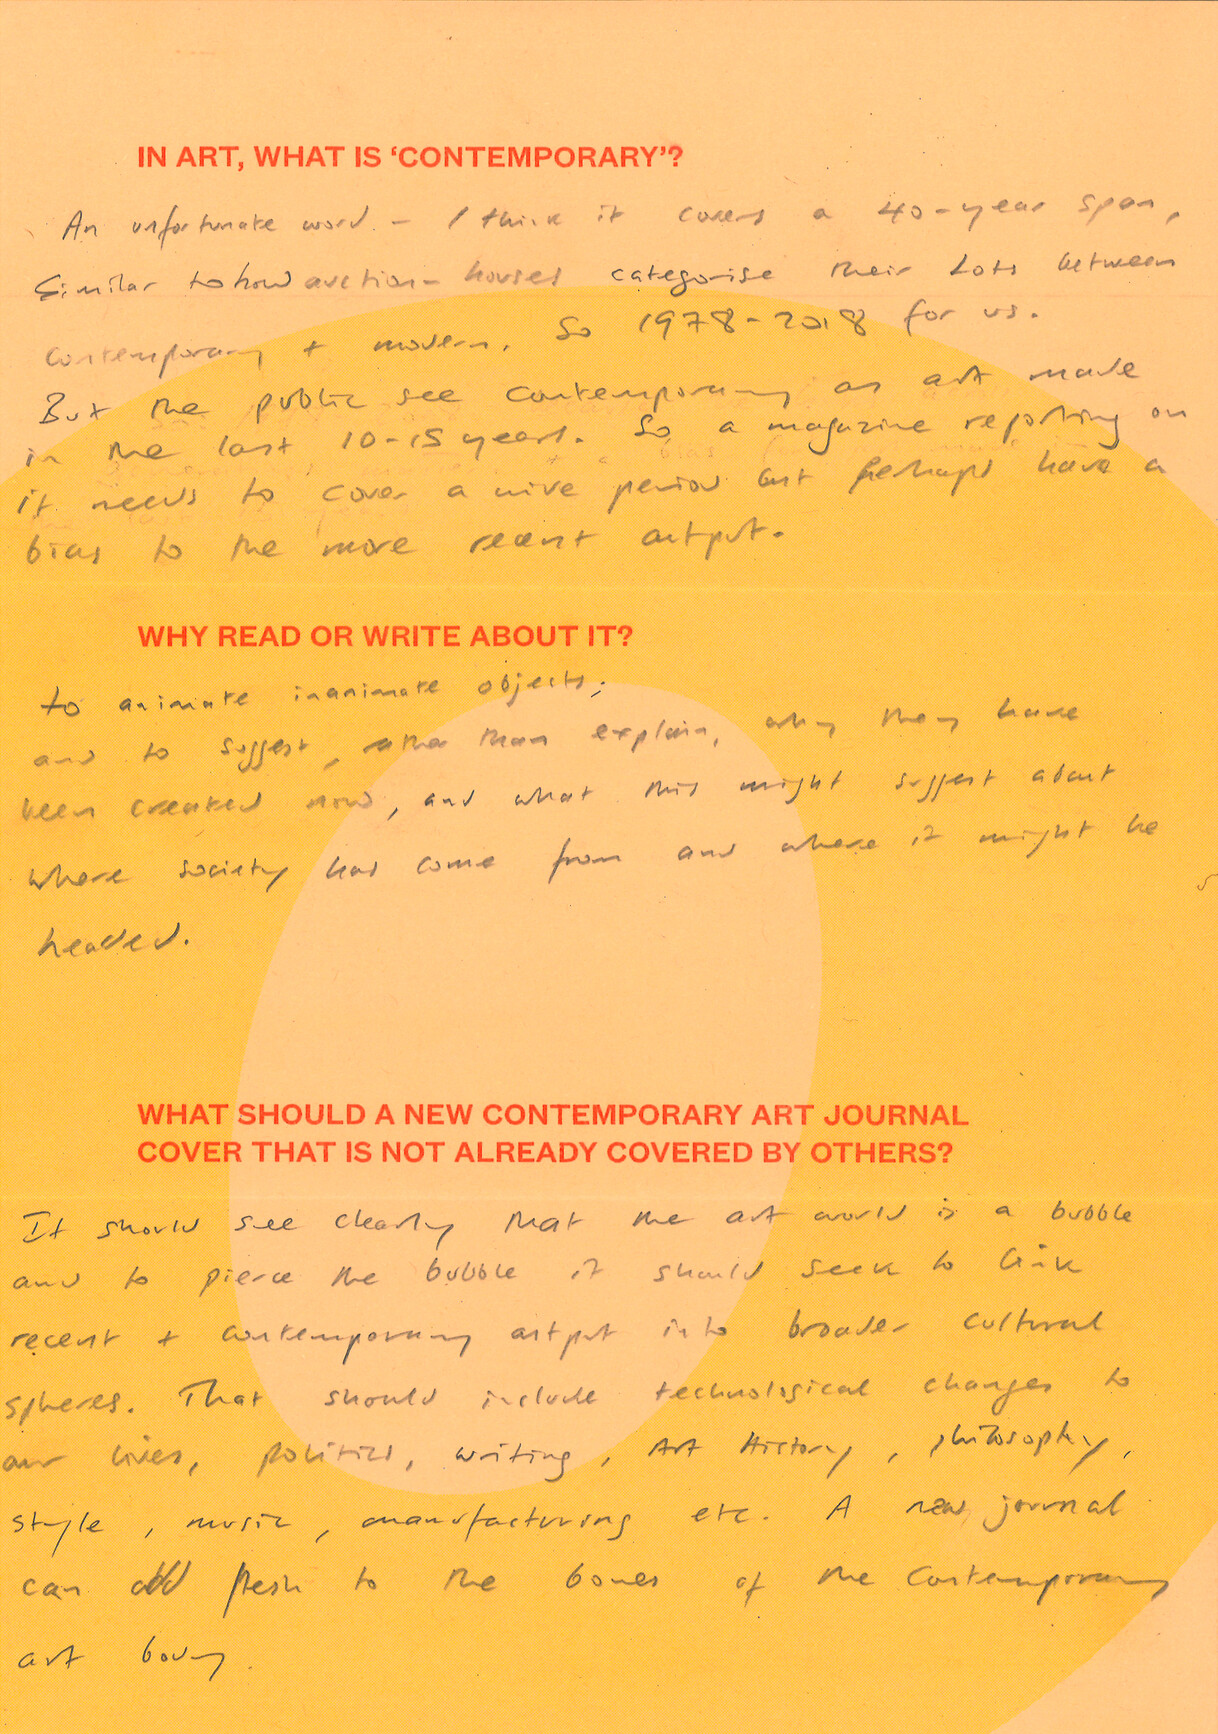 IN ART, WHAT IS ‘CONTEMPORARY’?
An unfortunate word – I think it covers a 40-year span,
Similar to how auction-houses categorise their Lots between
contemporary + modern. So 1978-2018 for us.
But the public see contemporary as art made
in the last 10-15 years. So a magazine reporting on
it needs to cover a wide period but perhaps have a
bias to the more recent artput.
WHY READ OR WRITE ABOUT IT?
To animate inanimate objects;
and to suggest, rather than explain, why they have
been created now, and what this might suggest about
where society has come from and where it might be
headed.
WHAT SHOULD A NEW CONTEMPORARY ART JOURNAL
COVER THAT IS NOT ALREADY COVERED BY OTHERS?
It should see clearly that the art world is a bubble
and to pierce the bubble it should seek to link
recent + contemporary artput into broader cultural
spheres. That should include technological changes to
our lives, politics, writing, Art History, philosophy,
style, music, manufacturing etc. A new journal
can add flesh to the bones of the contemporary
art body.